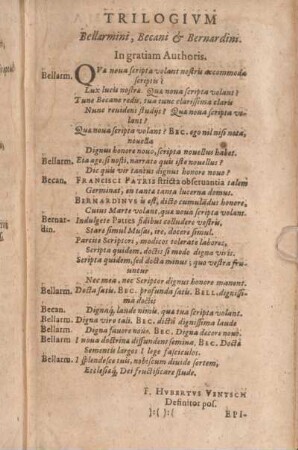 TRILOGIVM
Bellarmini, Becani & Bernardini.
In gratiam Authoris.
Bellarm. QVæ noua scripta volant nostris accommoda
scriptis?
Lux luci nostræ. Qua noua scripta volant?
Tune Becane redis, tua tunc clarissima claris
Nunc reuident studijs? Qua noua scripta vo-
lant?
Qua noua scripta volant? BEC. ego nil nisi nota,
nouella
Dignus honore nouo, scripta nouellus habet.
Bellarm. Eia age, si nosti, narrate quis iste nouellus?
Dic quis vir tantus dignus honore nouo?
Becan. FRANCISCI PATRIS stricta obseruantia talem
Germinat, en tanta tanta lucerna domus.
BERNARDINVS is est, dicto cumuladus honore,
Cuius Marte volant, qua noua scripta volant.
Bernar- Indulgete Patres fidibus colludere vestris,
din. Stare simul Musas, ire, docere simul.
Parcite Scriptori, modicos tolerate labores,
Scripta quidem, doctis si mode digna viris.
Scripta quidem, sed docta minus, quo vestra fru-
untur
Nec mea, nec Scriptor dignus honore manent.
Bellarm. Docta satis. BEC. profunda satis. BELL. dignissi-
ma doctis
Becan. Digna, lande nimis, qua tua scripta volant.
Bellarm. Digna viro tali. BEC. dictu dignissima laude
Bellarm. Digna fauore nouo. BEC. Digna decore nouo.
Bellarm. I noua doctrina diffundens semina. BEC. Docta
Sementis largos I lege fasciculos.
Bellarm. I splendesce tuli, nobiscum diuide sertem,
Ecclesiæq, Dei fructificare stude.
F. HVBERTVS VENTSCH
Definitor pos.
):( ):(
EPI-